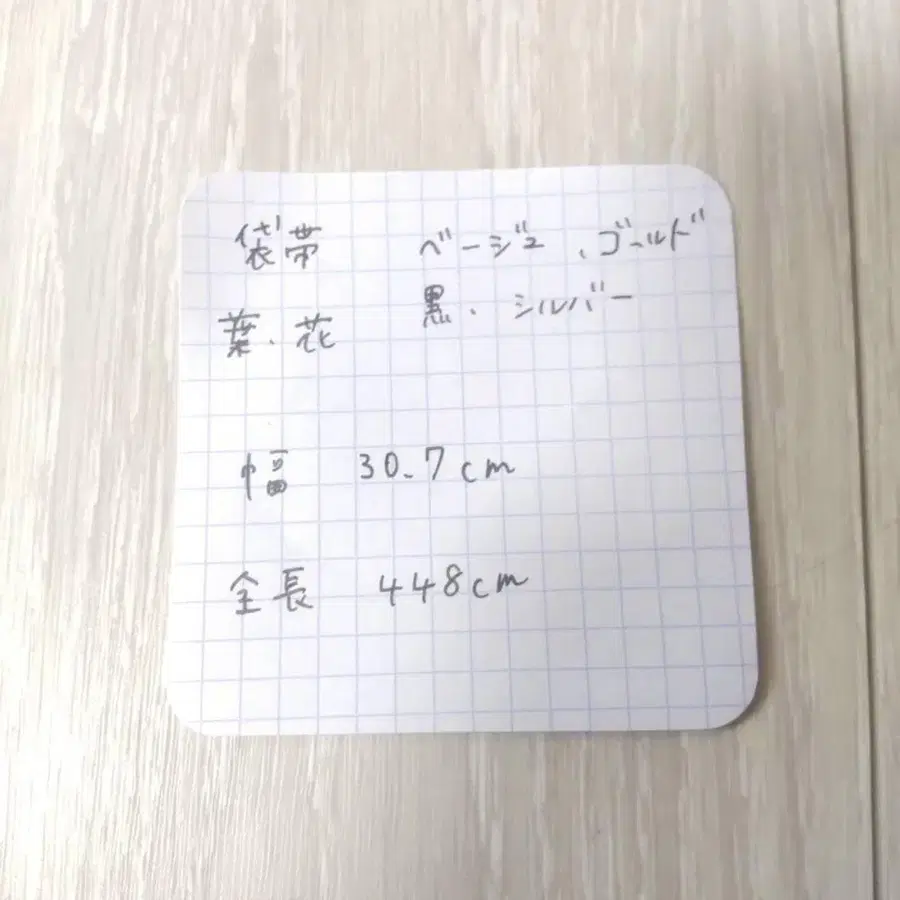 袋帯 ベージュ、ゴールド
葉、花 黒、シルバー
幅 30.7cm
全長 448cm